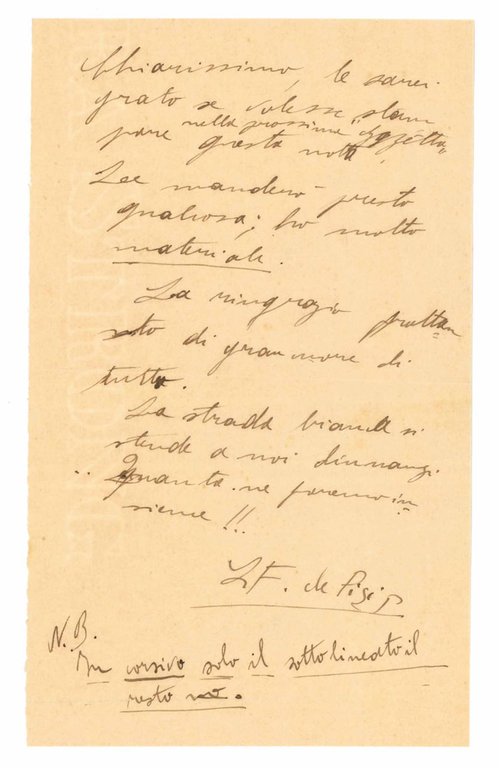 Chiarissimo, le sarei
grato se volesse stam
pare nella prossima "Gazzetta"
questa nota.
Le manderò presto
qualcosa; ho molto
materiale.
La ringrazio frattan
to di gran cuore di
tutto.
La strada bianca si
stende a noi dinnanzi
.. Quanta ne faremo in
sieme!!
N.B.
In corsivo solo il sottolineato il
resto no.